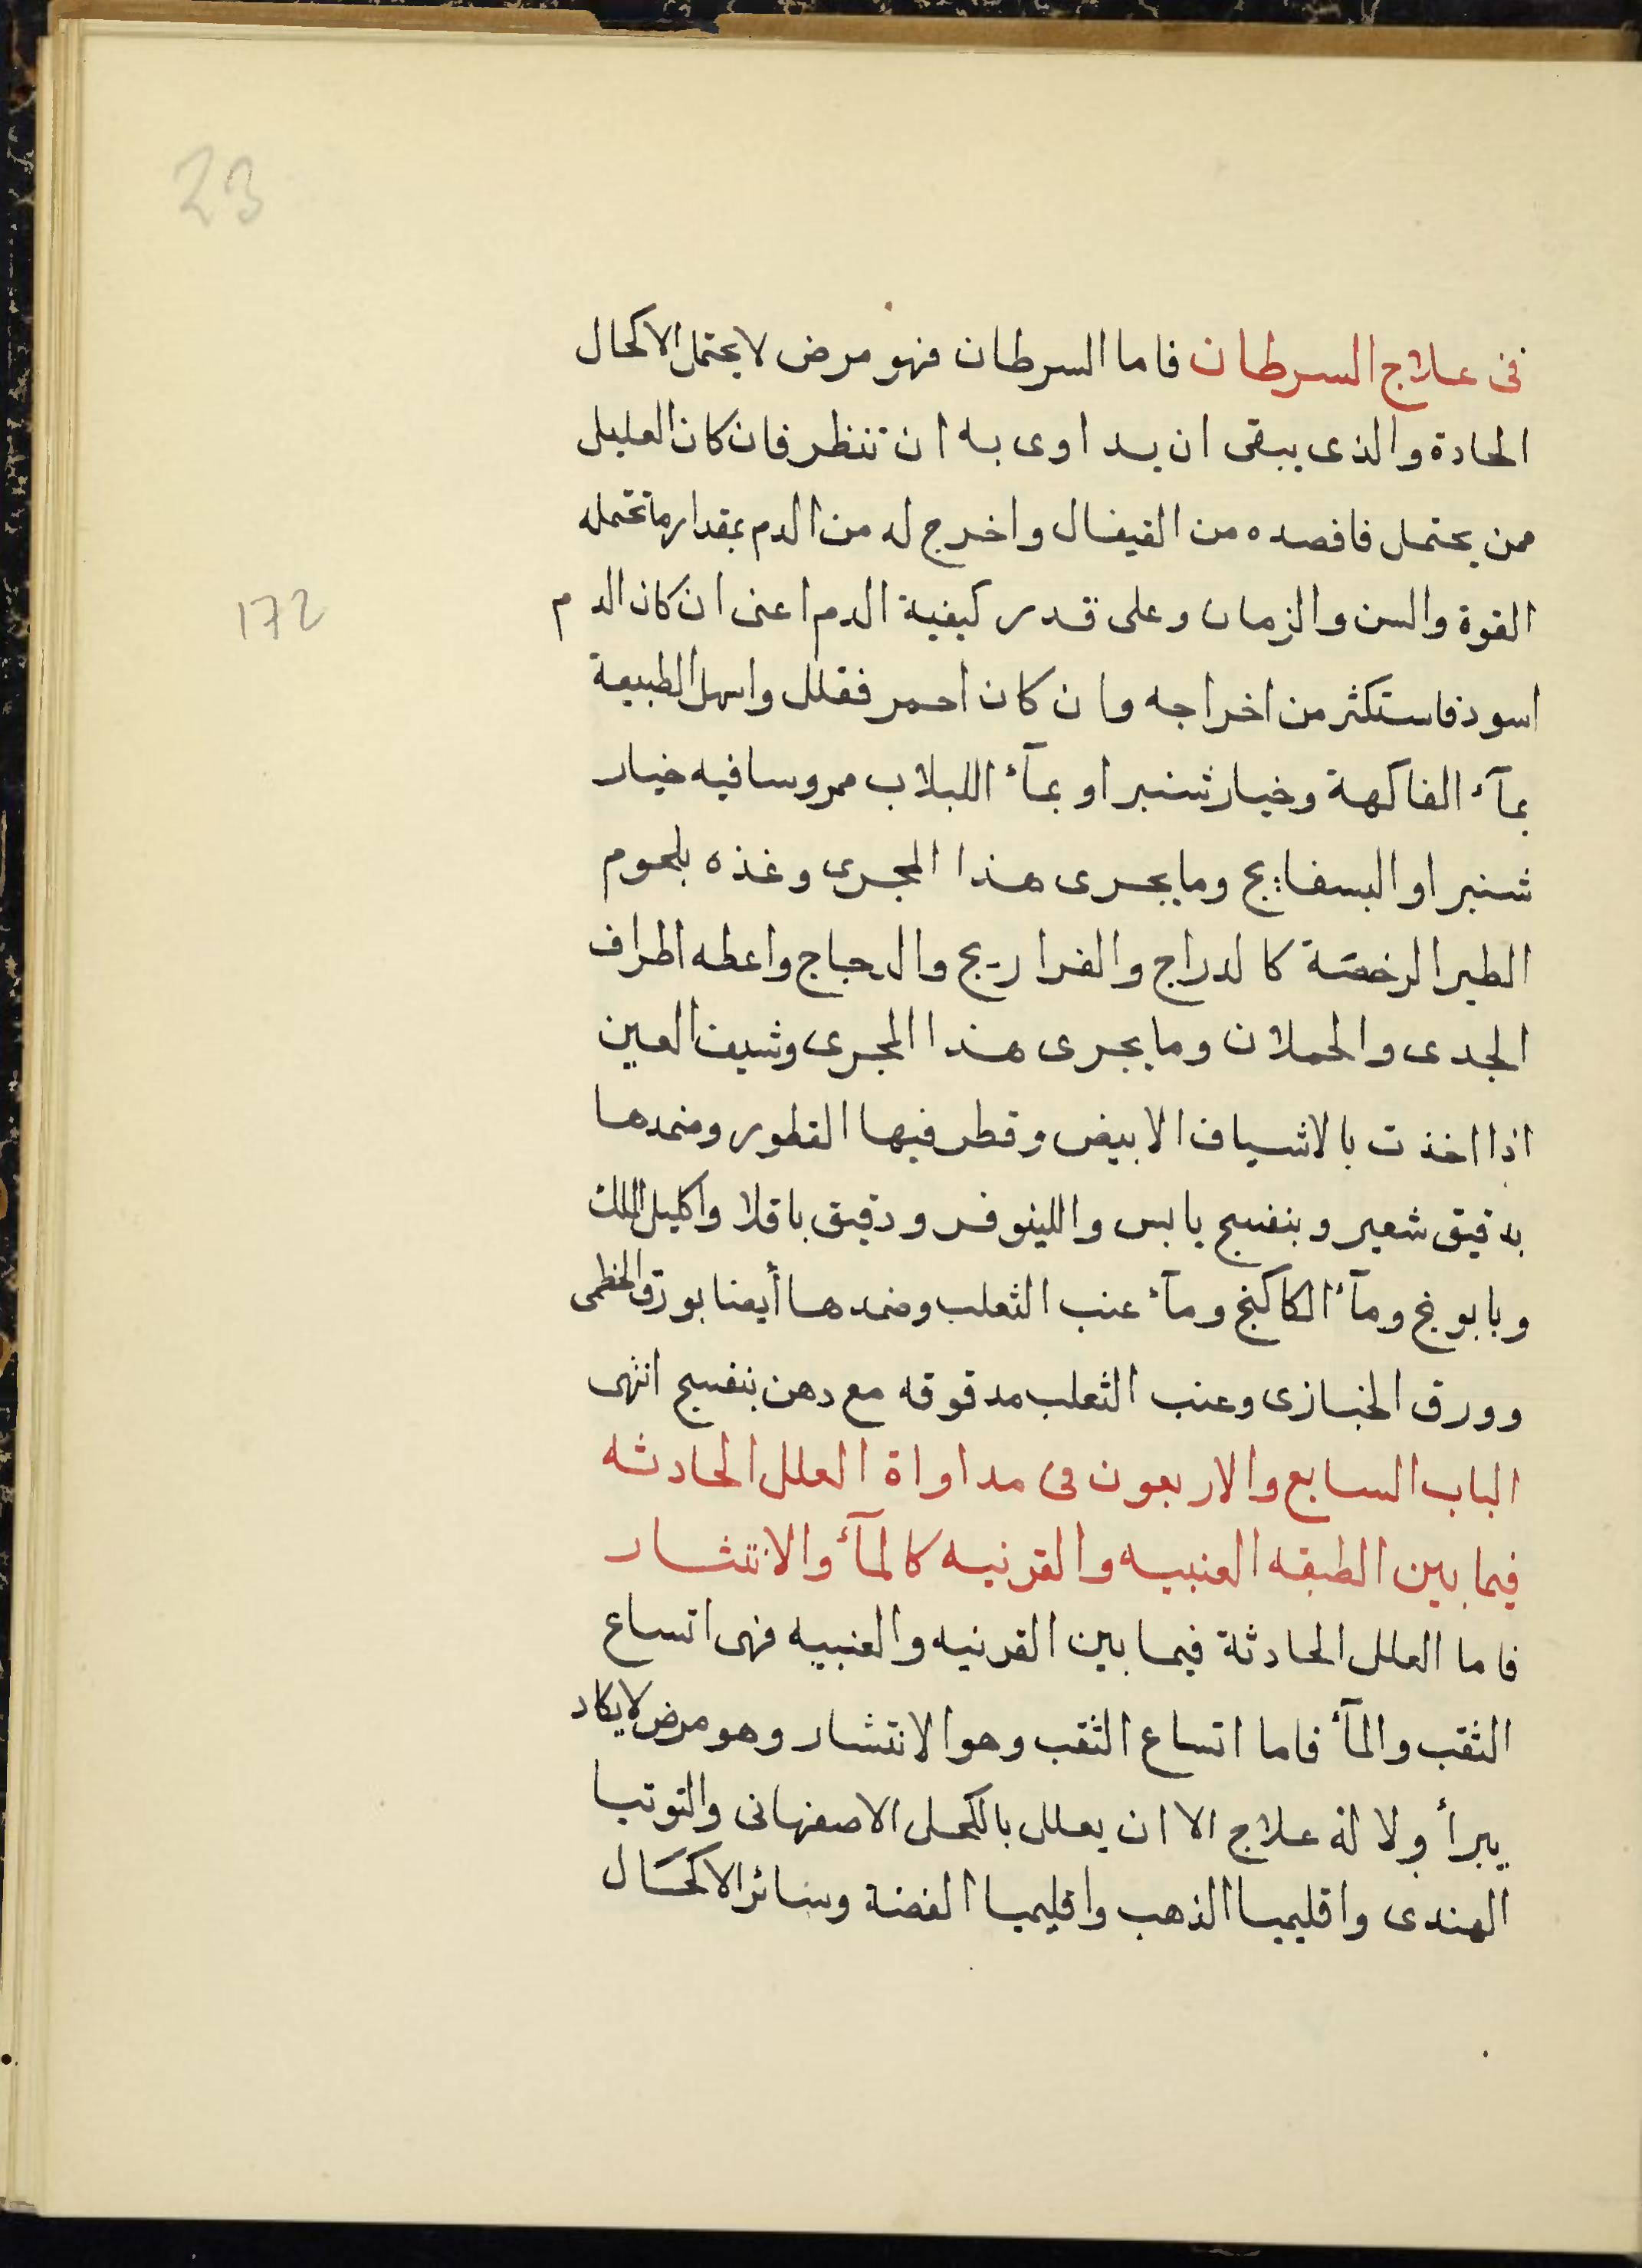 23
فى علاج السرطان فاما السرطان فهو مرض لا يحتمل الاكحال
الحادة والذى يبقى ان يداوى به ان تنظر فان كان العليل
ممن يحتمل فافصده من القيفال واخرج له من الدم بمقدار ما تحتمله
القوة والسن والزمان وعلى قدر كيفية الدم اعنى ان كان الدم
172
اسود فاستكثر من اخراجه وان كان احمر فقلل واسهل الطبيعة
بمآء الفاكهة وخيار شنبر او بمآء اللبلاب ممروسا فيه خيار
شنبر او البسفايج وما يجرى هذا المجرى وغذه بلحوم
الطير الرخصة كالدراج والفراريج والدجاج واعطه اطراف
الجدى والحملان وما يجرى هذا المجرى وشيف العين
اذا اخذت بالاشياف الابيض وقطر فيها القطور وضمدها
بدقيق شعير وبنفسج يابس واللينوفر ودقيق باقلا واكليل الملك
وبابونج ومآء الكاكنج ومآء عنب الثعلب وضمدها أيضا بورق الخطمى
وورق الخبازى وعنب الثعلب مدقوقه مع دهن بنفسج انتهى
الباب السابع والاربعون فى مداواة العلل الحادثه
فيما بين الطبقه العنبيه والقرنيه كالمآء والانتشار
فاما العلل الحادثة فيما بين القرنيه والعنبيه فهى اتساع
الثقب والمآء فاما اتساع الثقب وهو الانتشار وهو مرض لا يكاد
يبرأ ولا له علاج الا ان يعلل بالكحل الاصفهانى والتوتيا
الهندى واقليميا الذهب واقليميا الفضة وسائر الاكحال